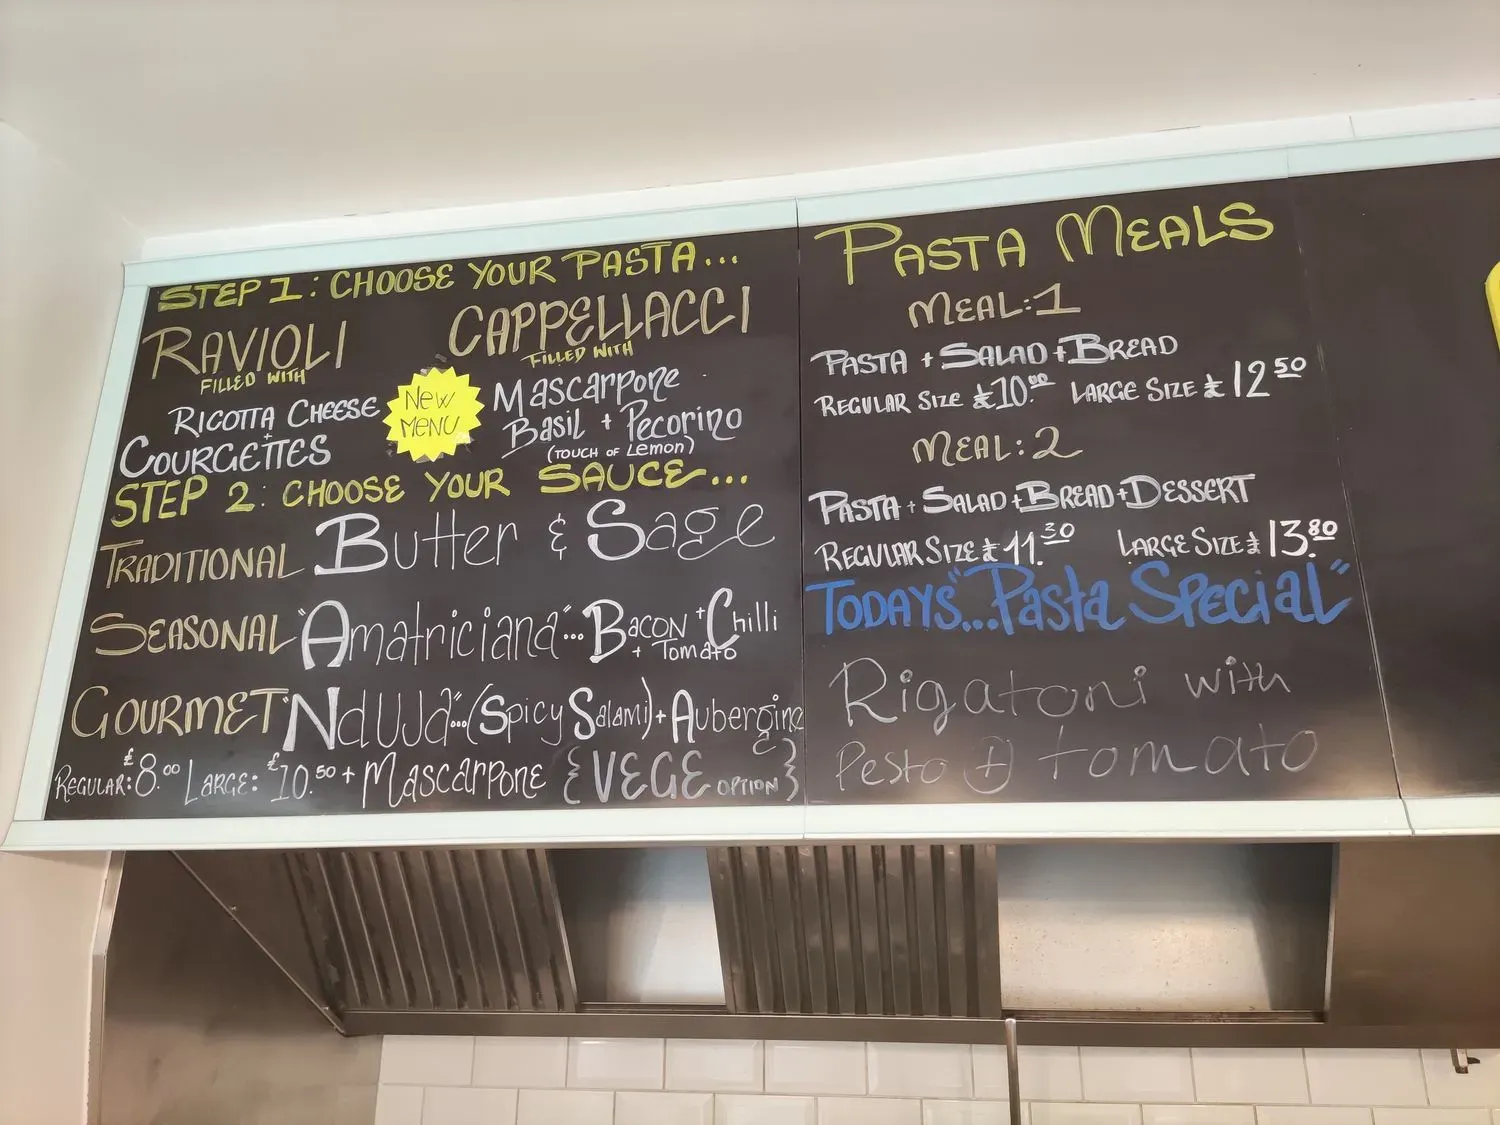 STEP 1: CHOOSE YOUR PASTA...
RAVIOLI
FILLED WITH
RICOTTA CHEESE
+
COURGETTES
NEW
MENU
CAPPELLACCI
FILLED WITH
Mascarpone
Basil + Pecorino
(TOUCH OF LEMON)
STEP 2: CHOOSE YOUR SAUCE...
TRADITIONAL Butter & Sage
SEASONAL "Amatriciana"... BACON + Chilli
+ TOMATO
GOURMET "NdUJa"...(Spicy Salami) + Aubergine
REGULAR: £8.00 LARGE: £10.50 + MASCARPONE {VEGE OPTION}
PASTA MEALS
MEAL:1
PASTA + SALAD + BREAD
REGULAR SIZE £10.00 LARGE SIZE £12.50
MEAL:2
PASTA + SALAD + BREAD + DESSERT
REGULAR SIZE £11.30 LARGE SIZE £13.80
TODAYS..."Pasta SPECIAL"
Rigatoni with
Pesto + tomato